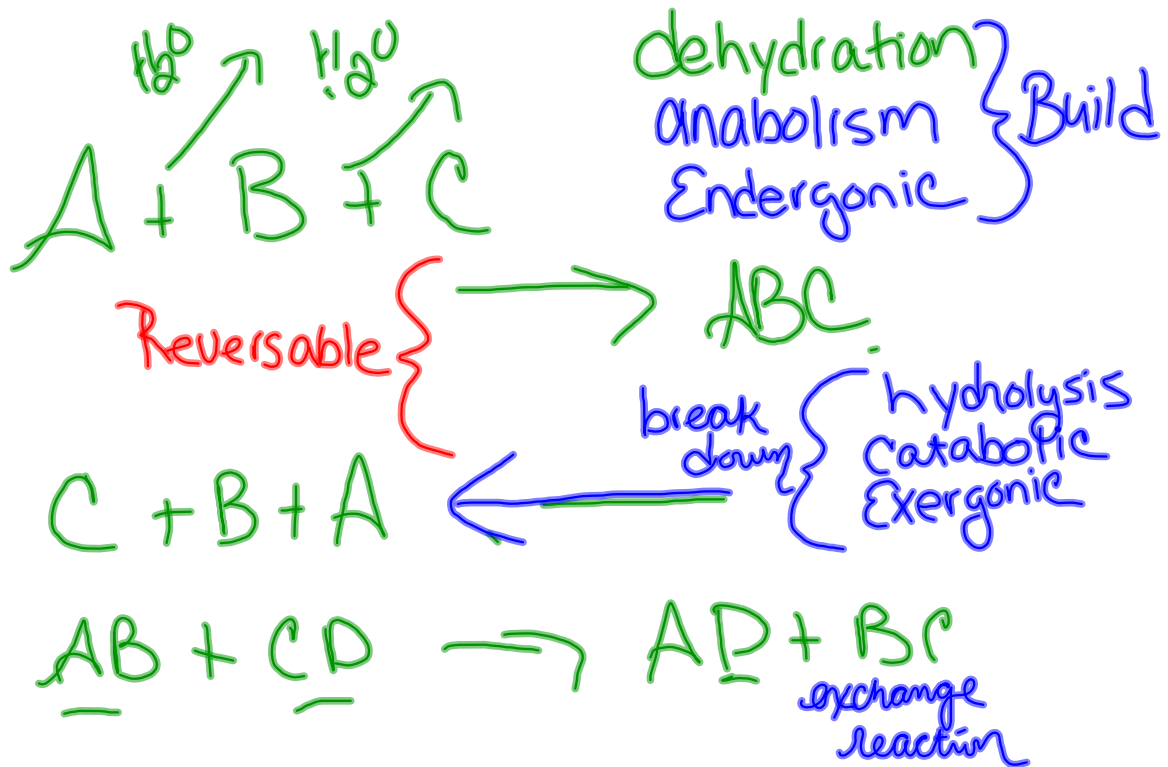 H2O H2O
dehydration
anabolism
Endergonic
Build
A + B + C
ABC
Reversable
break
down
hydrolysis
Catabolic
Exergonic
C + B + A
AB + CD AD + BC
exchange
reaction